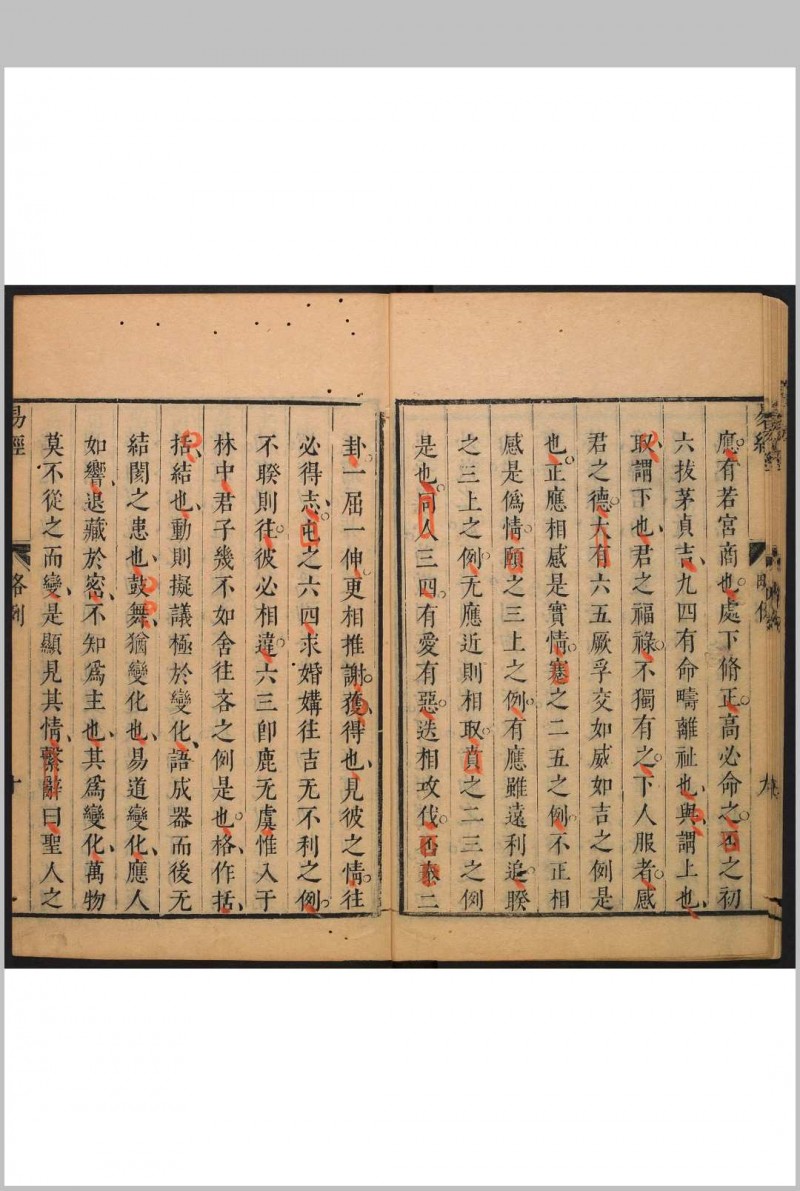 易經
略例
九
應有若宮商也處下脩正高必命之否之初
六拔茅貞吉九四有命疇離祉也與謂上也
取謂下也君之福祿不獨有之下人服者感
君之德大有六五厥孚交如威如吉之例是
也正應相感是實情蹇之二五之例不正相
感是僞情頤之三上之例有應雖遠利追睽
之三上之例无應近則相取賁之二三之例
是也同人三四有愛有惡迭相攻伐否泰二
卦一屈一伸更相推謝獲得也見彼之情往
必得志屯之六四求婚媾往吉无不利之例
不睽則往彼必相違六三卽鹿无虞惟入于
林中君子幾不如舍往吝之例是也格作括
括結也動則擬議極於變化語成器而後无
結閡之患也鼓舞猶變化也易道變化應人
如響退藏於密不知爲主也其爲變化萬物
莫不從之而變是顯見其情繫辭曰聖人之
易經
略例
十